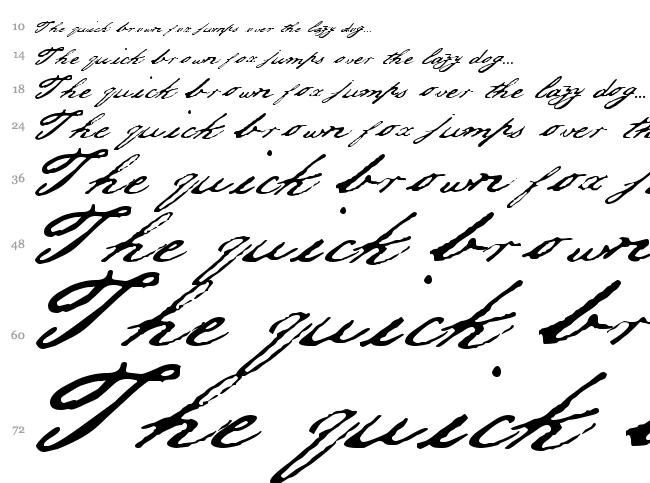 10 The quick brown fox jumps over the lazy dog...
14 The quick brown fox jumps over the lazy dog...
18 The quick brown fox jumps over the lazy dog...
24 The quick brown fox jumps over th
36 The quick brown fox j
48 The quick brown
60 The quick br
72 The quick